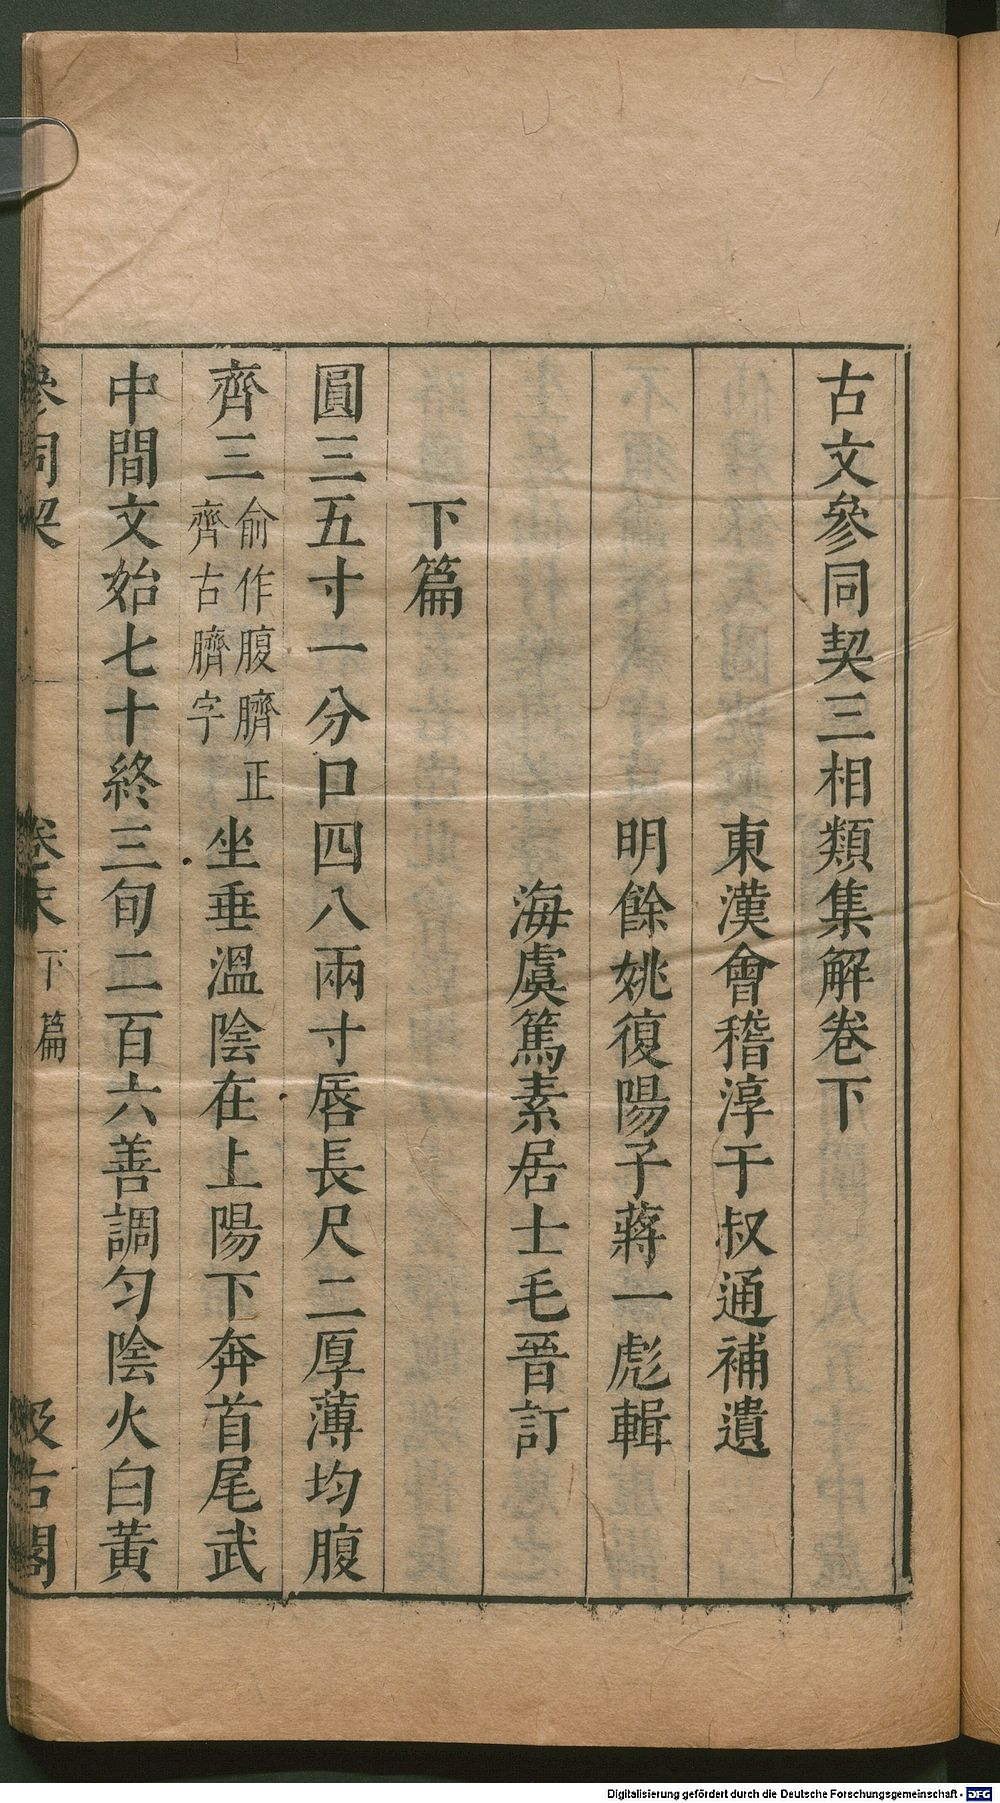 古文參同契三相類集解卷下
東漢會稽淳于叔通補遺
明餘姚復陽子蔣一彪輯
海虞篤素居士毛晉訂
下篇
圓三五寸一分口四八兩寸唇長尺二厚薄均腹
齊三俞作腹臍正齊古臍字坐垂溫陰在上陽下奔首尾武
中間文始七十終三旬二百六善調勻陰火白黃
參同契 卷末 下篇 汲古閣
Digitalisierung gefördert durch die Deutsche Forschungsgemeinschaft - DFG